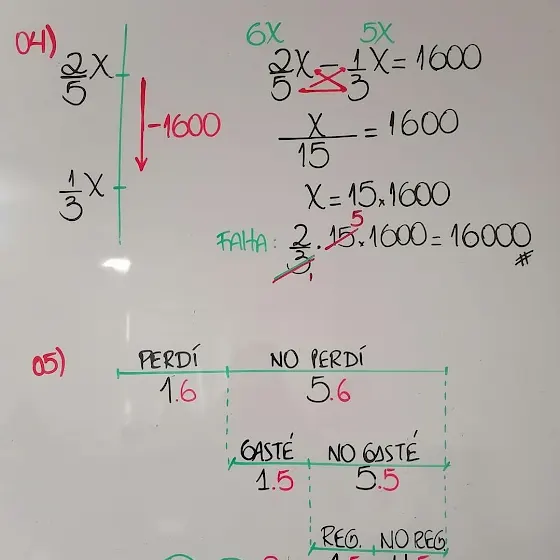 04)
2/5 X
-1600
1/3 X
6X 5X
2/5 X - 1/3 X = 1600
X/15 = 1600
X = 15 . 1600
5
FALTA: 2/3 . 15 . 1600 = 16000
1 #
05)
PERDÍ NO PERDÍ
1.6 5.6
GASTÉ NO GASTÉ
1.5 5.5
REG. NO REG